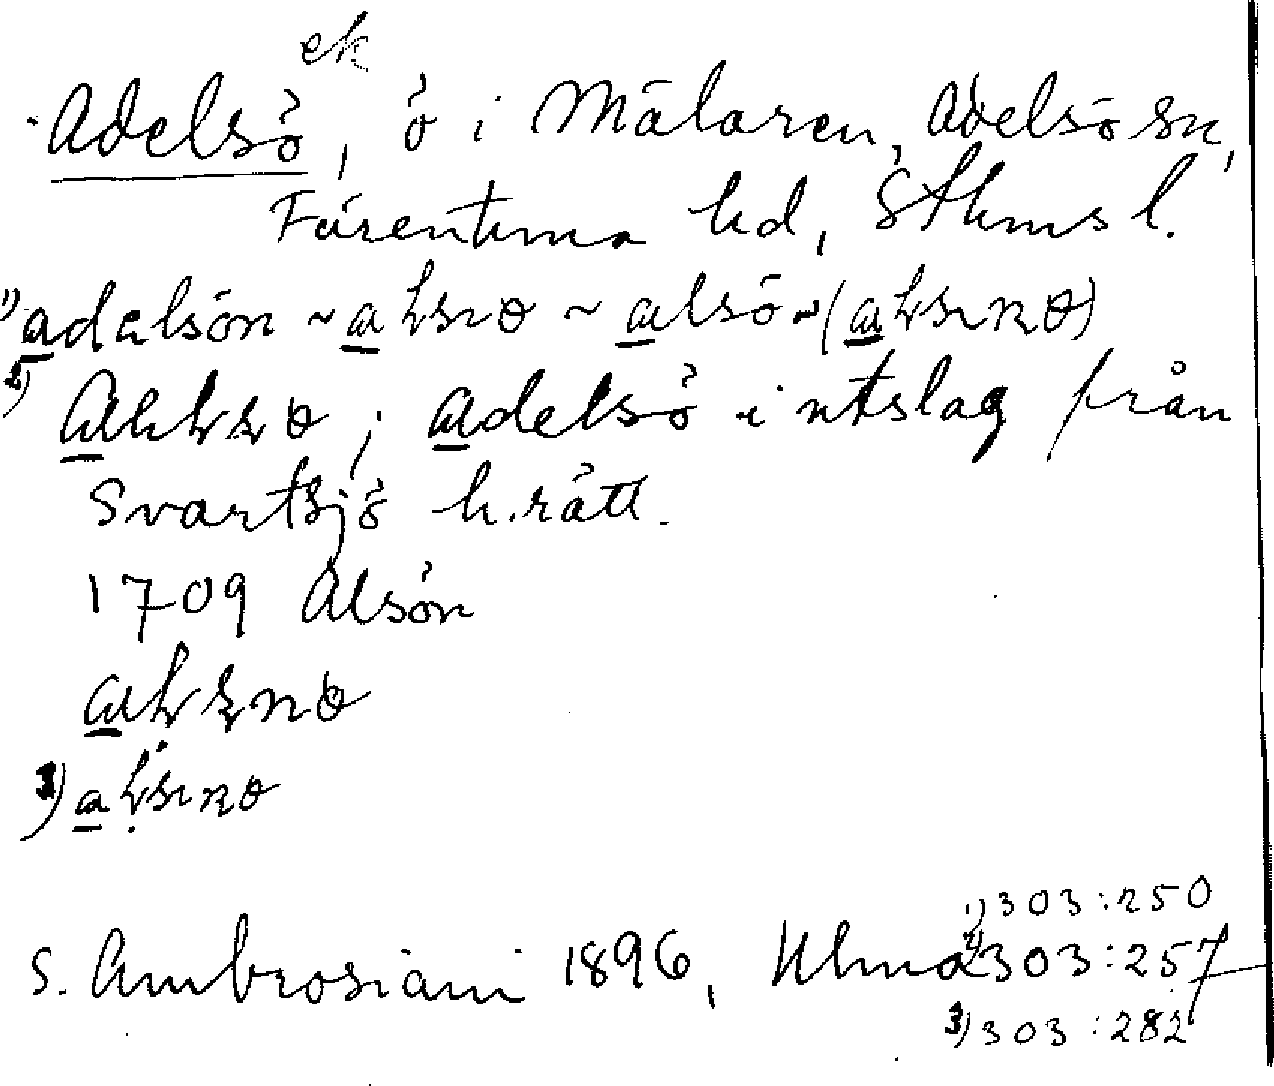 ek
Adelsö, ö i Mälaren, Adelsö sn,
Färentuna hd, Sthms l.
1) adelsön ~ ~ alsö ~
2) ; adelsö i utslag från
Svartsjö h.rätt.
1709 Alsön
3)
S. Ambrosiani 1896, Ulma 1) 303:250
2) 303:257
3) 303:282